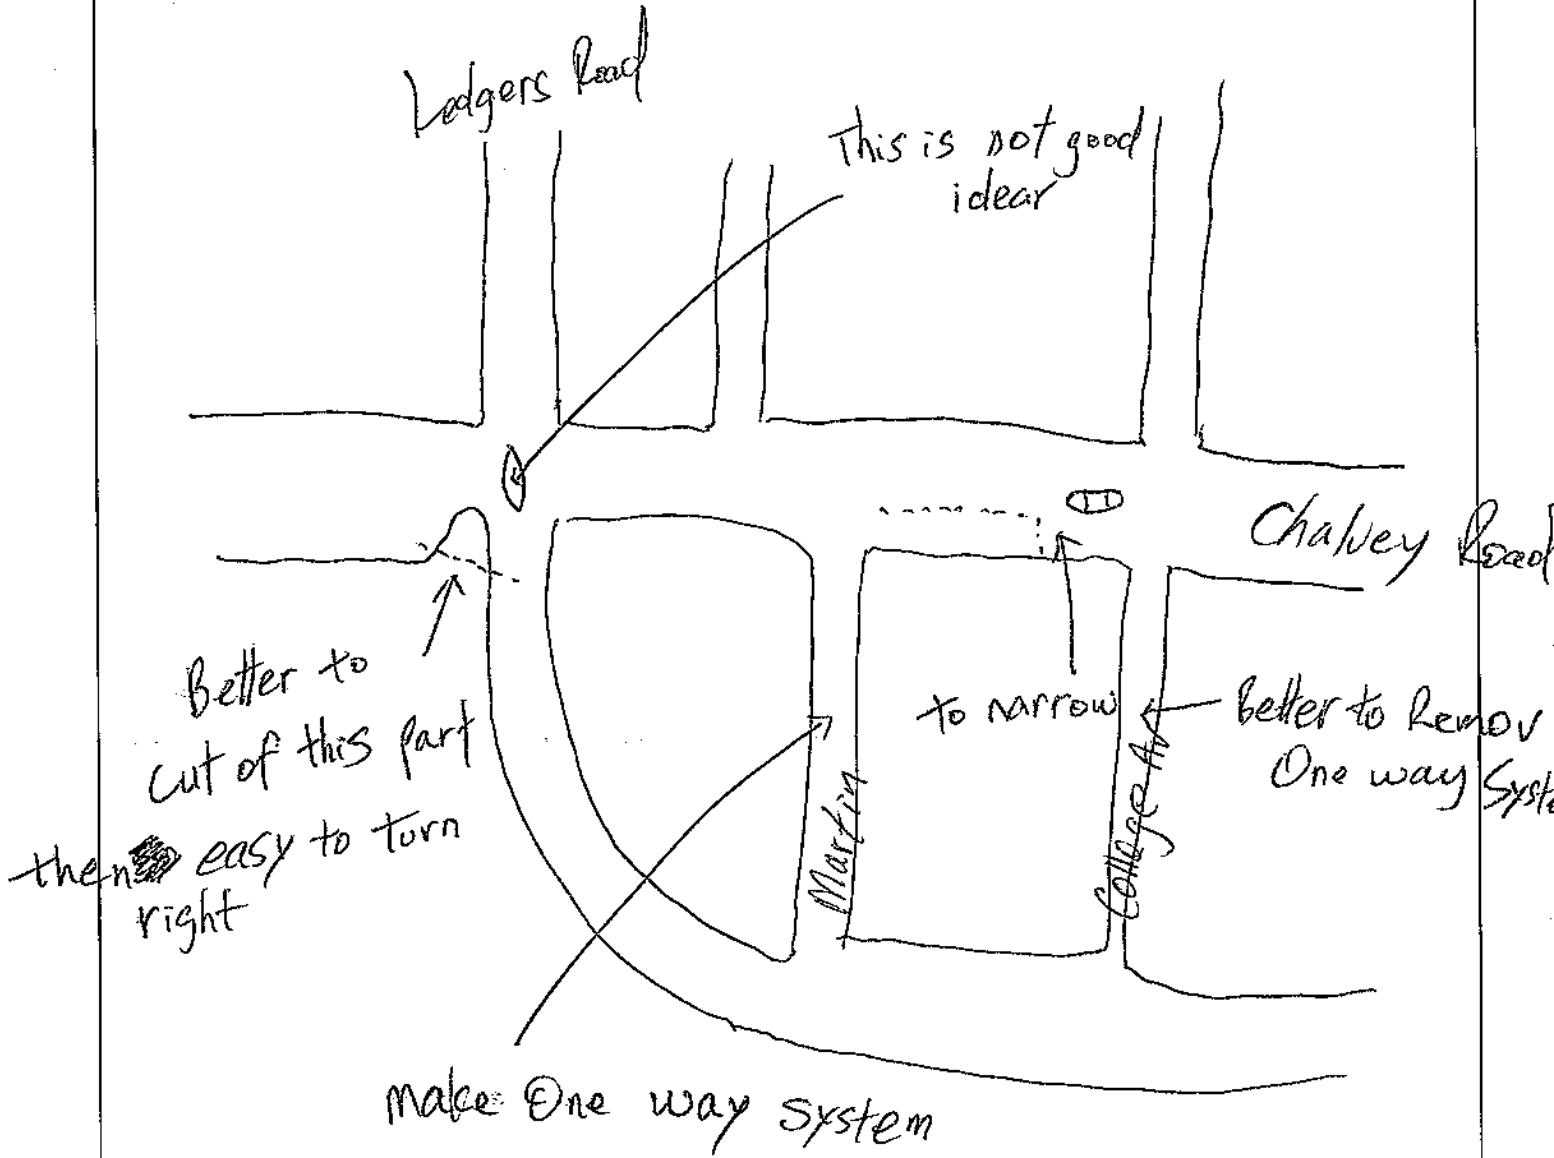 Ledgers Road
This is not good
idear
Chalvey Road
Better to
cut of this part
then easy to turn
right
to narrow
Better to Remov
One way Syste
Martin
College Av
make One way system